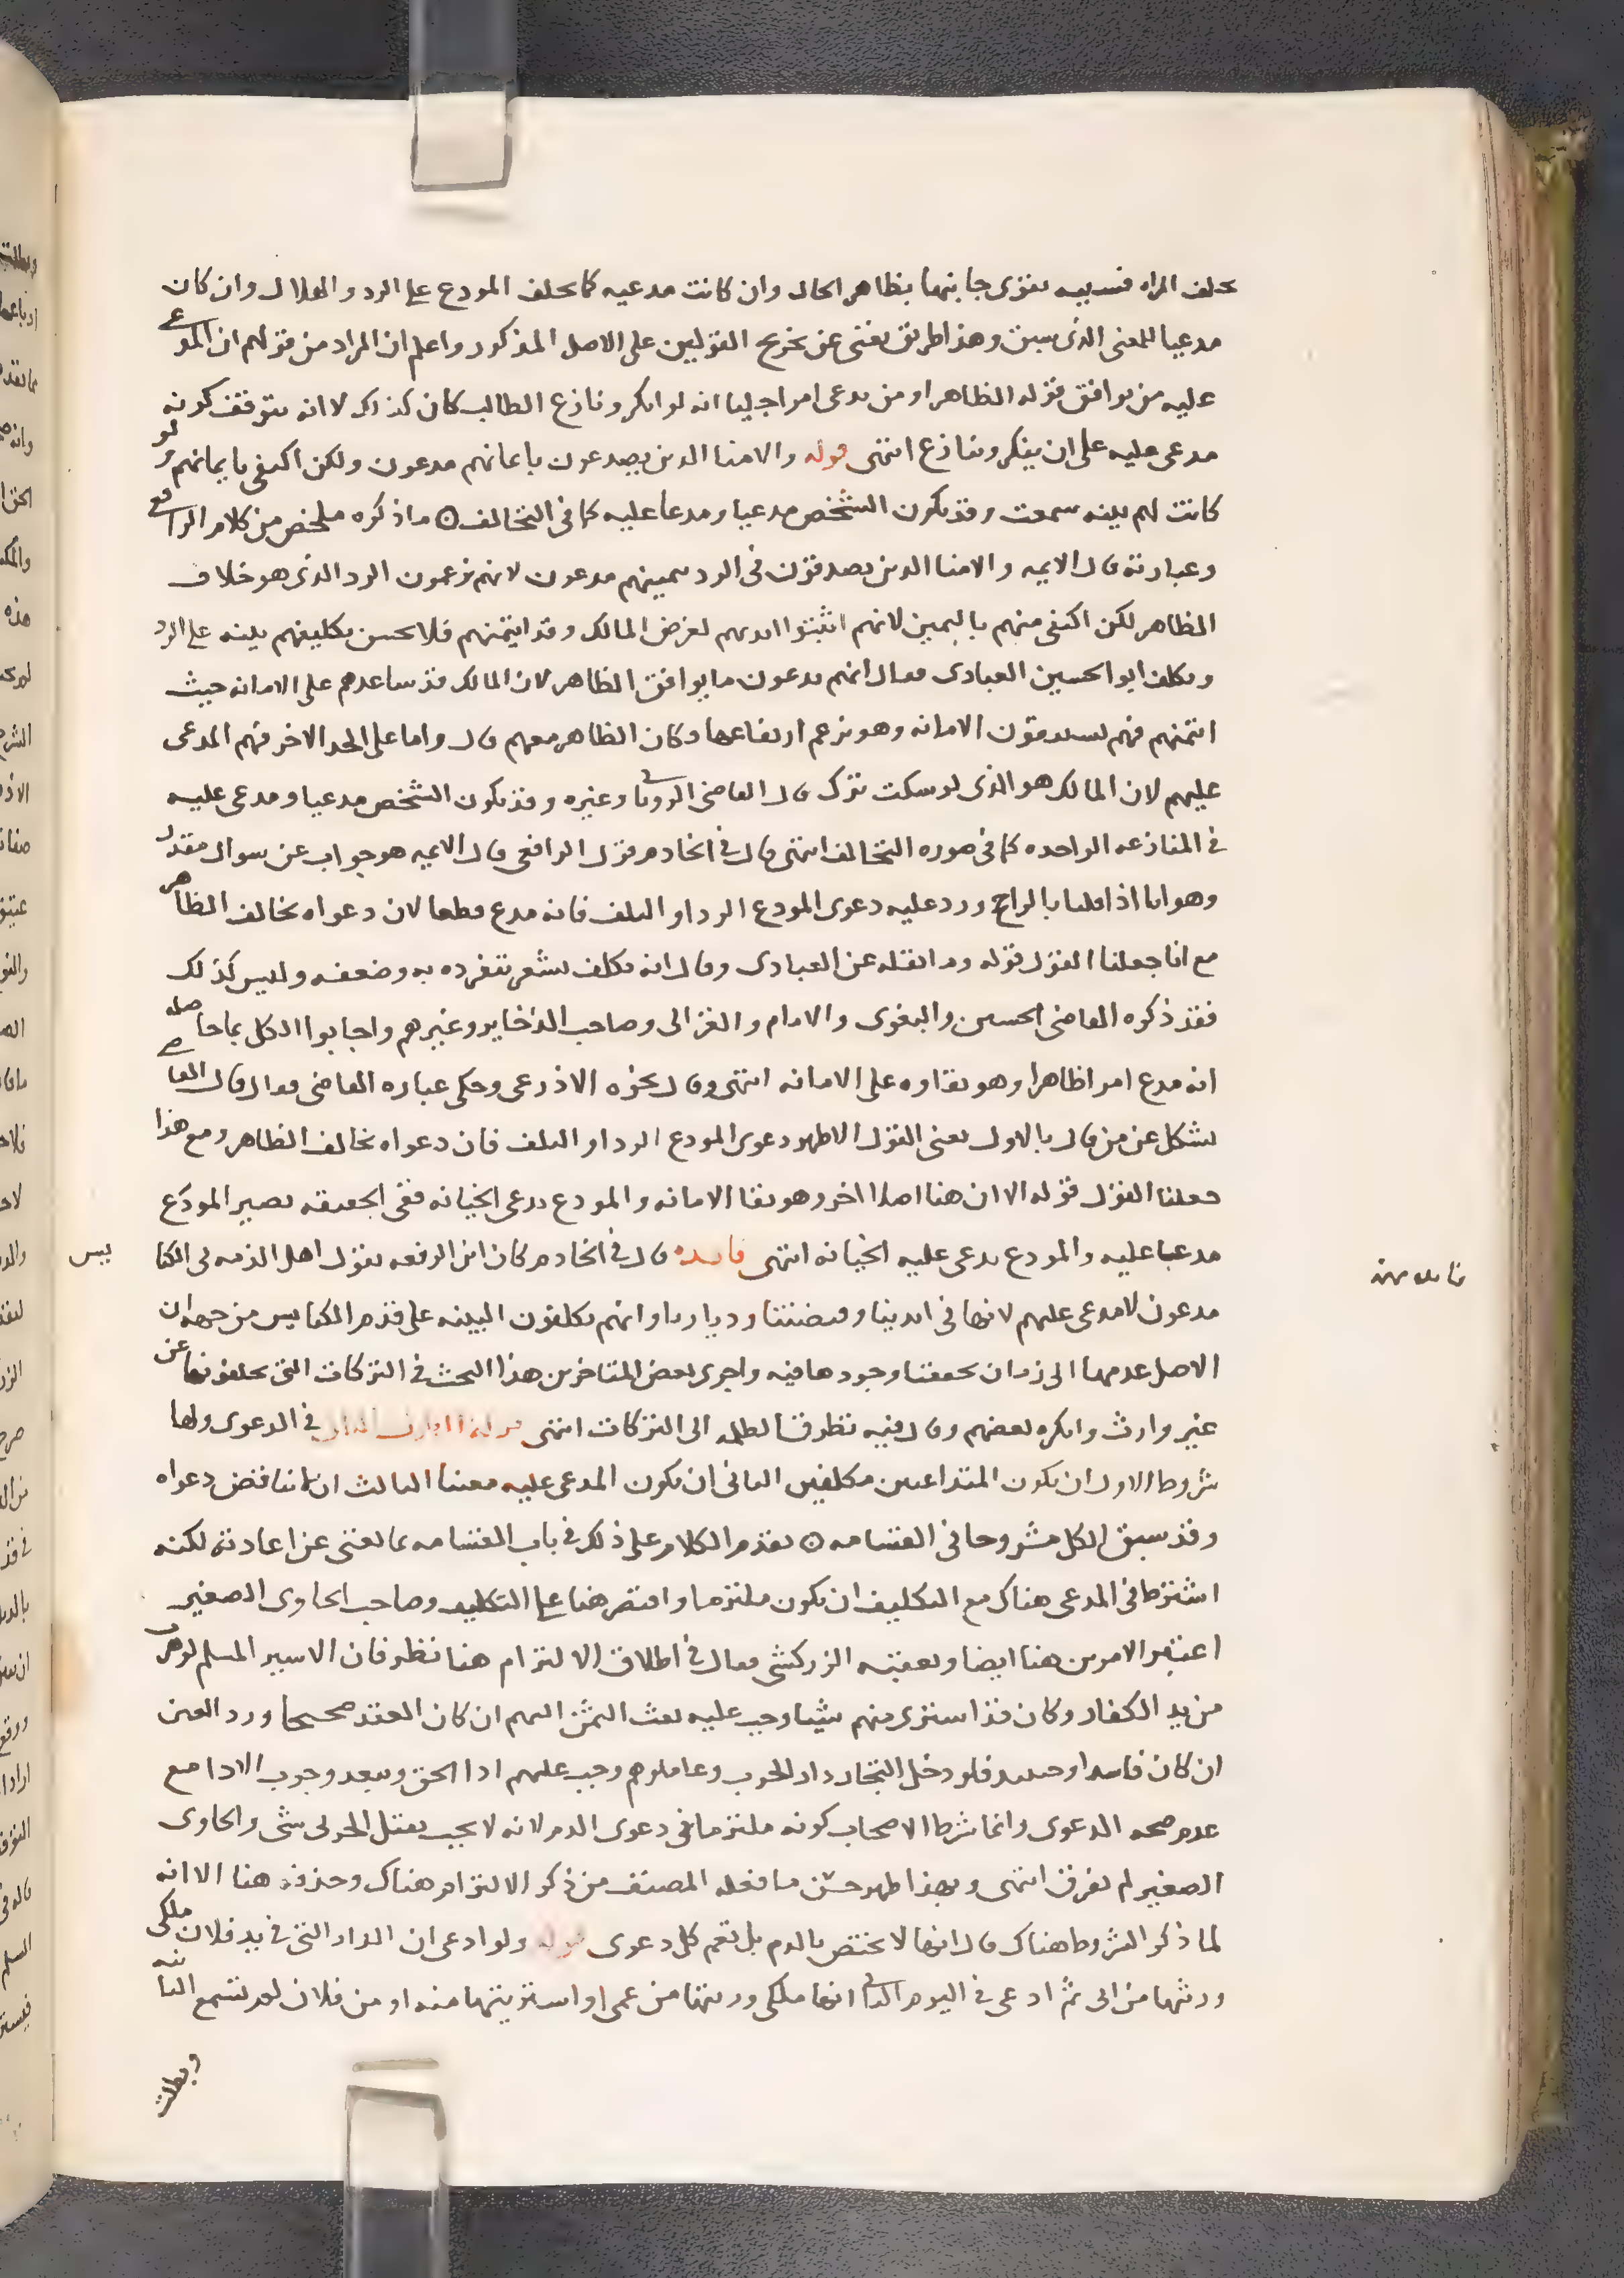 تحلف المراه فسببه تقوى جانبها بظاهر الحال وان كانت مدعيه كما يحلف المودع على الرد والهلاك وان كان
مدعيا للمعنى الذى سبق وهذا طريق يغنى عن تخريج القولين على الاصل المذكور واعلم ان المراد من قولهم ان المدعى
عليه من يوافق قوله الظاهر او من يدعى امرا جليا انه لو انكر ونازع الطالب كان كذلك لا انه يتوقف كونه
مدعى عليه على ان ينكر وينازع انتهى قوله والامنا الذين يصدعون بايمانهم مدعون ولكن اكتفى بايمانهم ولو
كانت لهم بينه سمعت وقد يكون الشخص مدعيا ومدعا عليه كما فى التحالف ۞ ما ذكره ملخص من كلام الرافعى
وعبارته قال الايمه والامنا الذين يصدقون فى الرد بيمينهم مدعون لانهم يزعمون الرد الذى هو خلاف
الظاهر لكن اكتفى منهم باليمين لانهم اثبتوا ايديهم لغرض المالك وقد ايتمنهم فلا يحسن تكليفهم بينه على الرد
وتكلف ابو الحسين العبادى فقال انهم يدعون ما يوافق الظاهر لان المالك قد ساعدهم على الامانه حيث
ائتمنهم فهم يستدعون الامانه وهو يزعم ارتفاعها وكان الظاهر معهم قال واما على الحد الاخر فهم المدعى
عليهم لان المالك هو الذى لو سكت ترك قال القاضى الرويانى وغيره وقد يكون الشخص مدعيا ومدعى عليه
فى المنازعه الواحده كما فى صوره التحالف انتهى قال فى الخادم قول الرافعى قال الايمه هو جواب عن سوال مقدر
وهو انا اذا قلنا بالراجح ورد عليه دعوى المودع الرد او التلف فانه مدع قطعا لان دعواه تخالف الظاهر
مع انا جعلنا القول قوله وما نقله عن العبادى وقال انه تكلف يشعر بتفرده به وضعفه وليس كذلك
فقد ذكره القاضى الحسين والبغوى والامام والغزالى وصاحب الذخاير وغيرهم واجابوا الكل بما حاصله
انه مدع امرا ظاهرا وهو بقاوه على الامانه انتهى وقال نحوه الاذرعى وحكى عباره القاضى فقال قال القاضى
يشكل عن من قال بالاول يعنى القول الاظهر دعوى المودع الرد او التلف فان دعواه تخالف الظاهر ومع هذا
جعلنا القول قوله الا ان هنا اصلا اخر وهو بقا الامانه والمودع يدعى الخيانه ففى الحقيقه يصير المودع
مدعيا عليه والمودع يدعى عليه الخيانه انتهى فايده قال فى الخادم كان ابن الرفعه يقول اهل الذمه فى الكنايس
مدعون لا مدعى عليهم لانها فى ايدينا وقبضتنا وديارنا وانهم يكلفون البينه على قدم الكنايس من جهه ان
الاصل عدمها الى زمان تحققنا وجودها فيه واجرى بعض المتاخرين هذا البحث فى التركات التى يخلفونها عن
غير وارث وانكره بعضهم وقال فيه تطرق الظلمه الى التركات انتهى فى الدعوى ولها
شروط الاول ان يكون المتداعيين مكلفين الثانى ان يكون المدعى عليه معينا الثالث ان لا تناقض دعواه
وقد سبق الكل مشروحا فى القسامه ۞ تقدم الكلام على ذلك فى باب القسامه بما يغنى عن اعادته لكنه
اشترط فى المدعى هناك مع التكليف ان يكون ملتزما واقتصر هنا على التكليف وصاحب الحاوى الصغير
اعتبر الامرين هنا ايضا وتعقبه الزركشى فقال فى اطلاق الالتزام هنا نظر فان الاسير المسلم لو هرب
من يد الكفار وكان قد اشترى منهم شيئا وجب عليه بعث الثمن اليهم ان كان العقد صحيحا ورد العين
ان كان فاسدا وحينيذ فلو دخل التجار دار الحرب وعاملوهم وجب عليهم ادا الحق ويبعد وجوب الادا مع
عدم صحه الدعوى وانما شرط الاصحاب كونه ملتزما فى دعوى الدم لانه لا يجب بقتل الحربى شى والحاوى
الصغير لم يفرق انتهى وبهذا ظهر حسن ما فعله المصنف من ذكر الالتزام هناك وحذفه هنا الا انه
لما ذكر الشروط هناك قال انها لا تختص بالدم بل تعم كل دعوى قوله ولو ادعى ان الدار التى فى يد فلان ملكى
ورثتها من ابى ثم ادعى فى اليوم الثانى انها ملكى ورثتها من عمى او اشتريتها منه او من فلان لم تسمع الثانيه
وبطلت
فايده مهمه